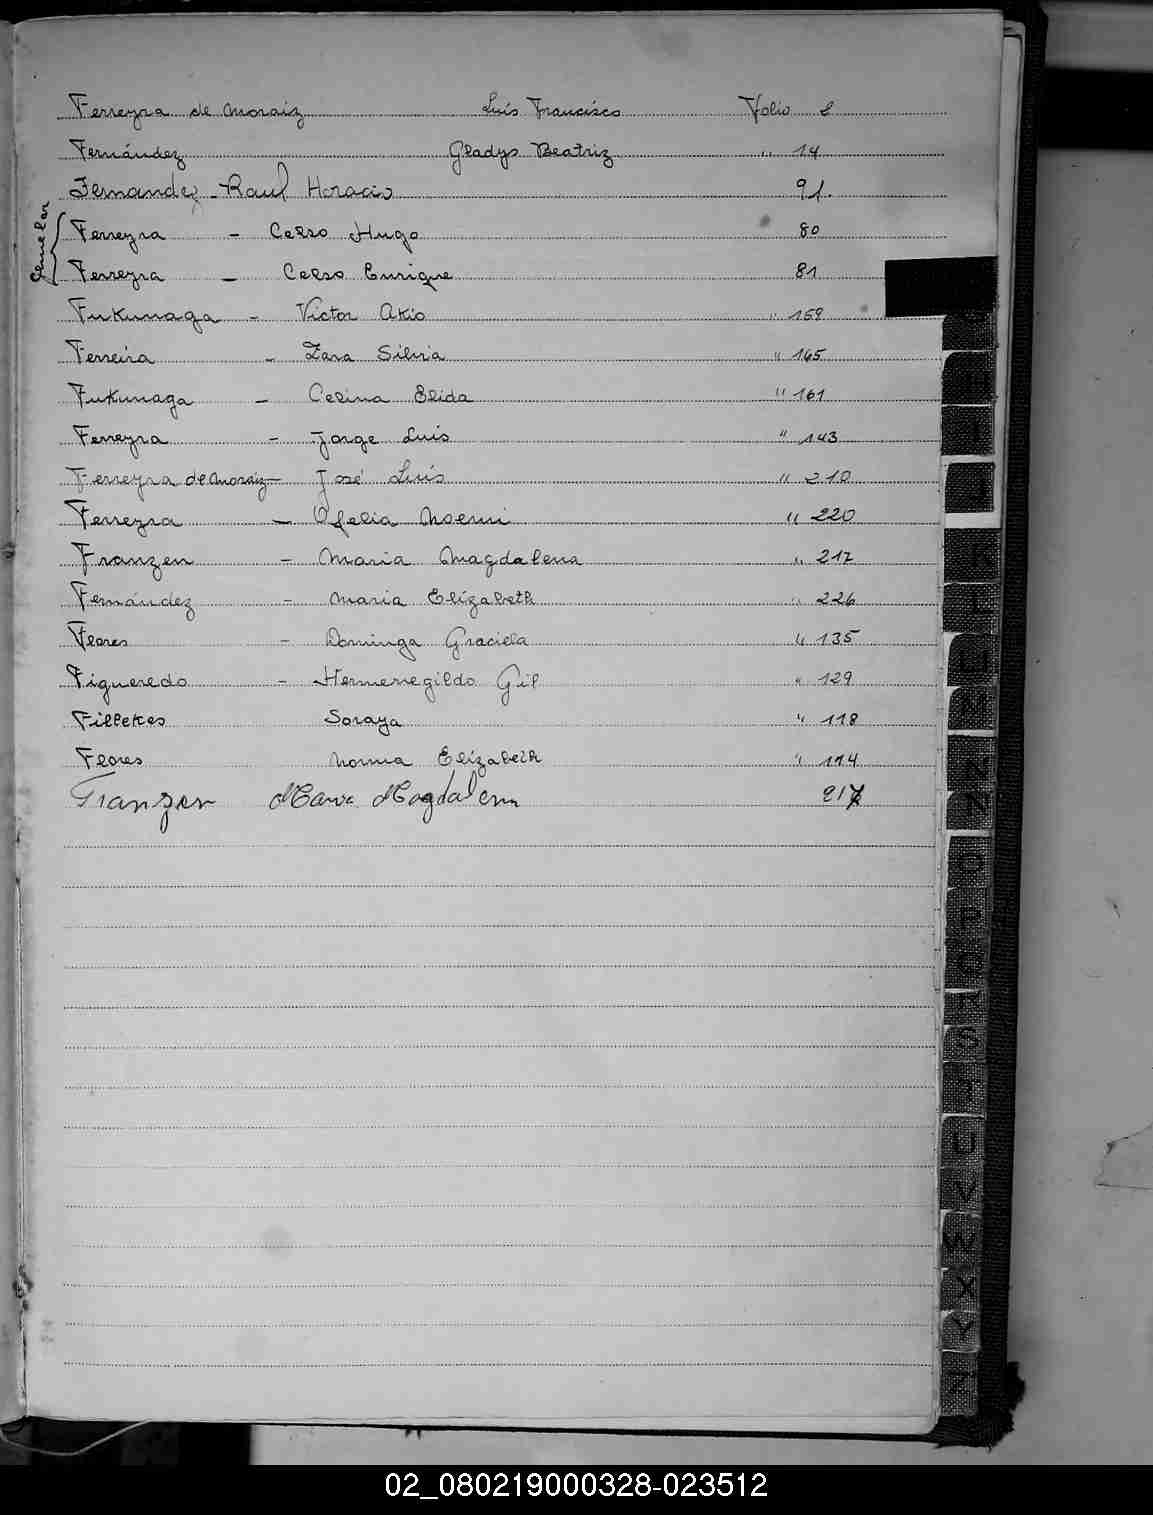 Ferreyra de Moraiz Luis Francisco Folio 8
Fernández Gladys Beatriz " 14
Fernandez - Raul Horacio 91.
Ferreyra - Celso Hugo 80
Ferreyra - Celso Enrique 81
Fukunaga - Victor Akio " 159
Ferreira - Zara Silvia " 165
Fukunaga - Celina Elida " 161
Ferreyra - Jorge Luis " 143
Ferreyra de Moraiz - José Luis " 210
Ferreyra - Ofelia Noemi " 220
Franzen - Maria Magdalena " 217
Fernández - Maria Elizabeth " 226
Flores - Dominga Graciela " 135
Figueredo - Hermenegildo Gil " 129
Filletes Soraya " 118
Flores Norma Elizabeth " 114
Franzen Maria Magdalena 217
Gemelos
L
M
N
Ñ
O
P
Q
R
S
T
U
V
W
X
Y
Z
02_080219000328-023512